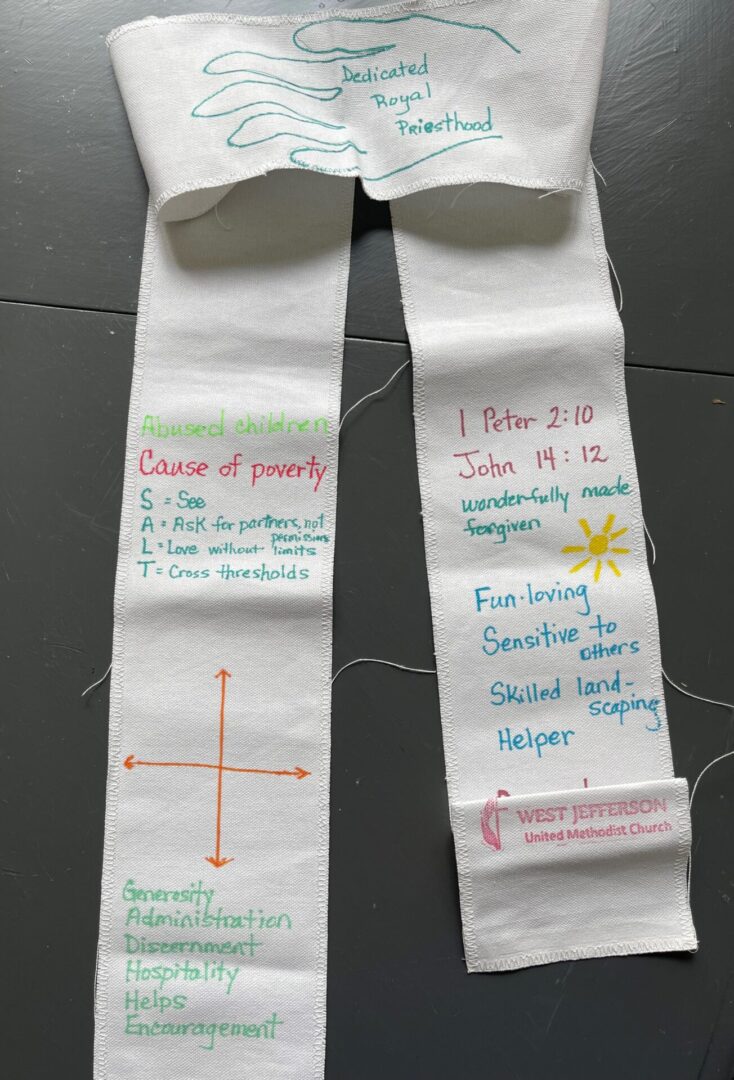 Dedicated
Royal
Priesthood
Abused children
Cause of poverty
S = See
A = Ask for partners, not permission
L = Love without limits
T = Cross thresholds
Generosity
Administration
Discernment
Hospitality
Helps
Encouragement
1 Peter 2:10
John 14:12
wonderfully made
forgiven
Fun-loving
Sensitive to
others
Skilled land-
scaping
Helper
WEST JEFFERSON
United Methodist Church